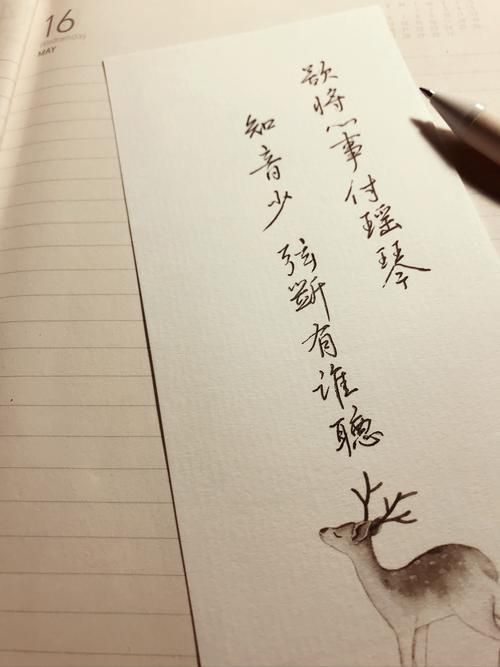 16
Wednesday
MAY
欲将心事付瑶琴
知音少 弦斷有谁聽